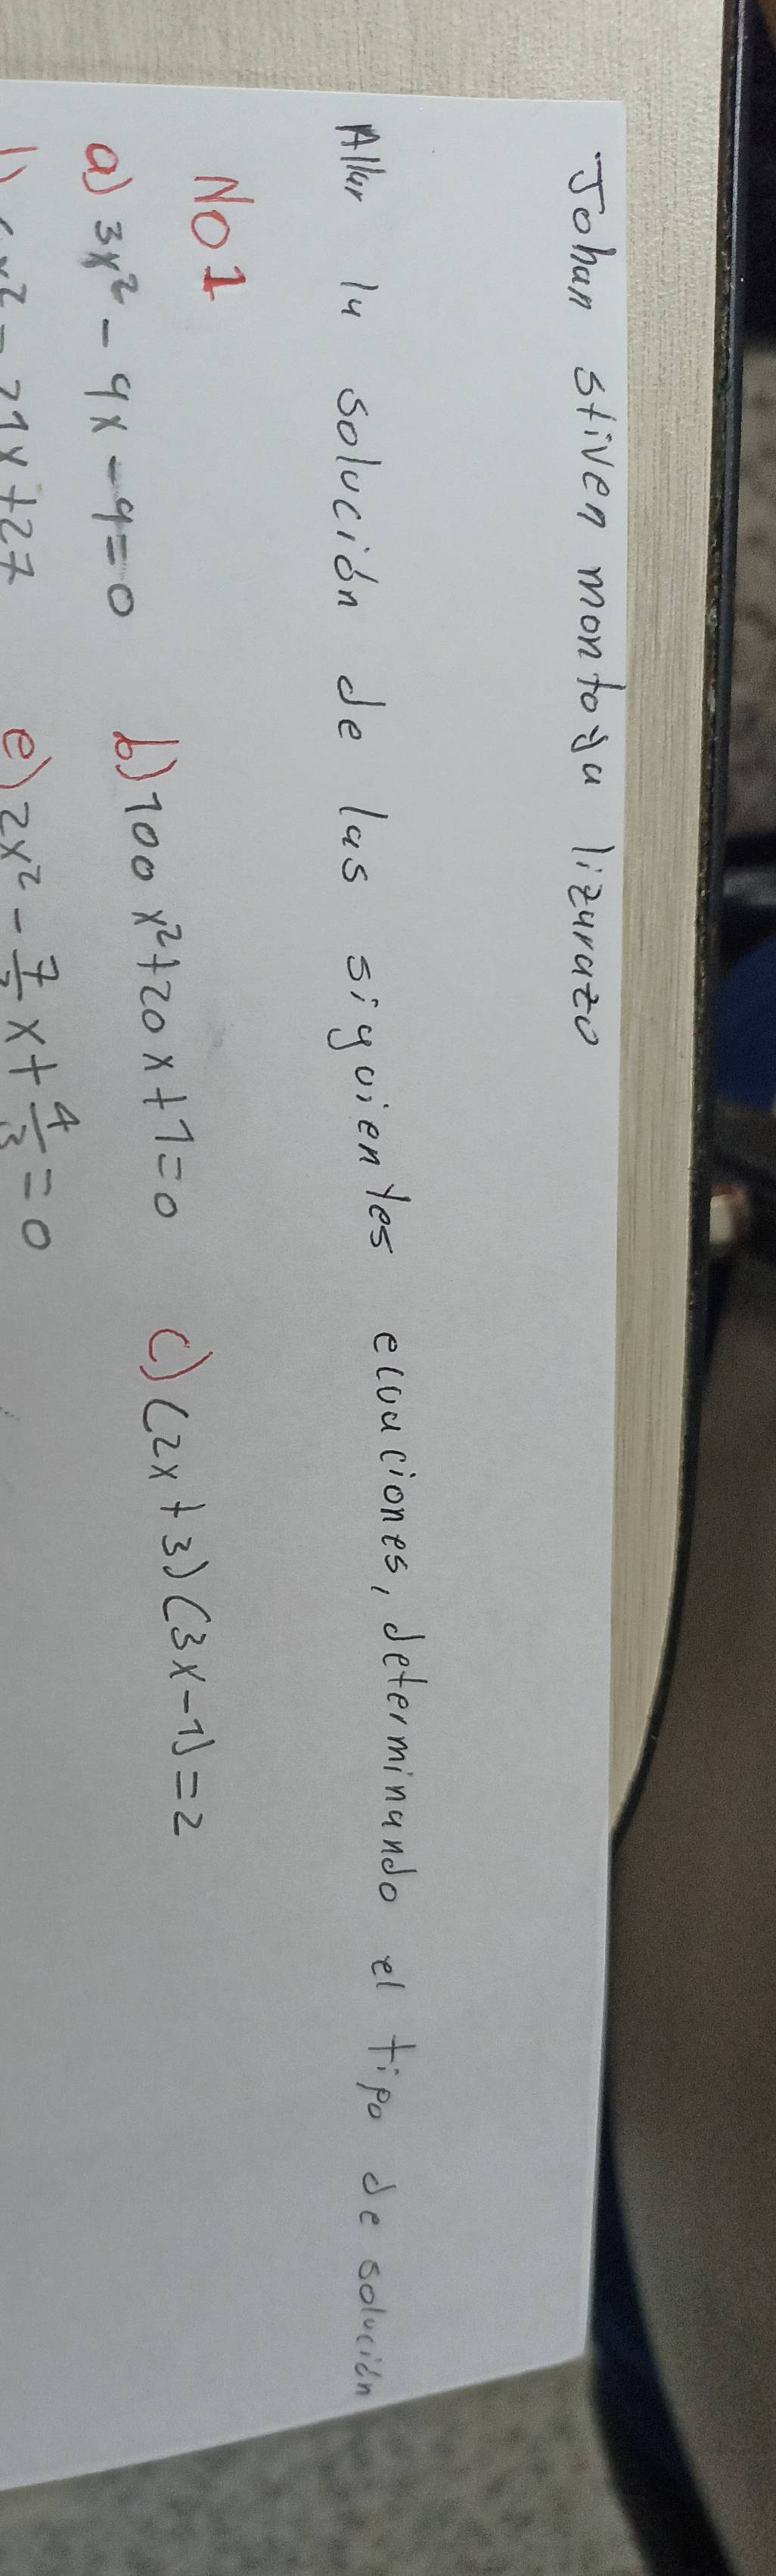 Johan stiven montoya lizarazo
Allar la solución de las siguientes ecuaciones, determinando el tipo de solución
No 1
a) 3x² - 9x - 9 = 0 b) 100x² + 20x + 1 = 0 c) (2x + 3)(3x - 1) = 2
x² - 21x + 27 e) 2x² - x + 4/3 = 0